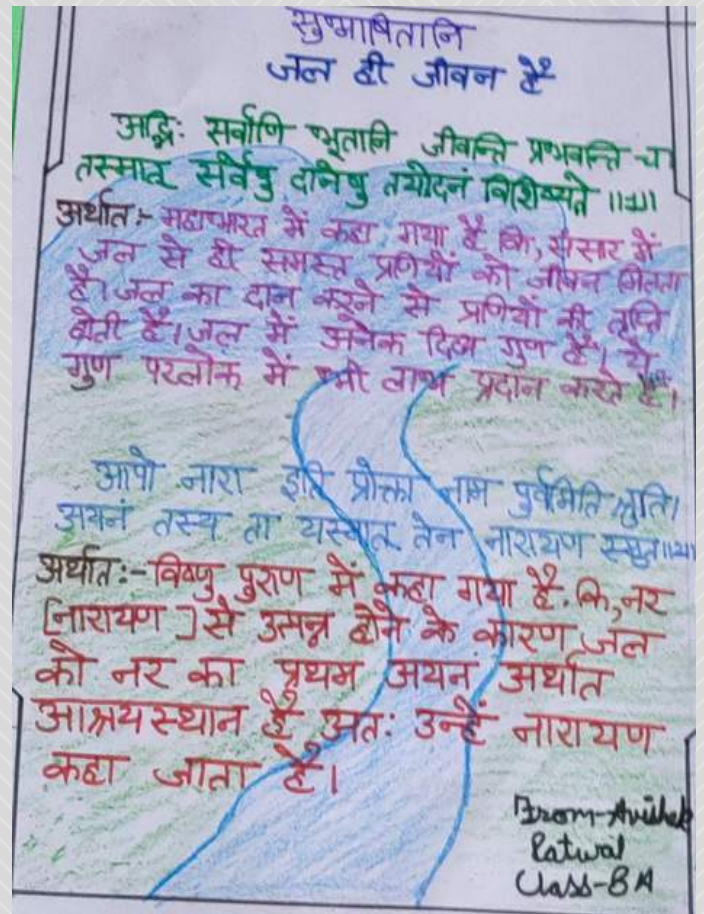 सुभाषितानि
जल ही जीवन है
अद्भिः सर्वाणि भूतानि जीवन्ति प्रभवन्ति च
तस्मात् सर्वेषु दानेषु तयोदनं विशिष्यते ॥1॥
अर्थात:- महाभारत में कहा गया है कि, संसार में
जल से ही समस्त प्रणियों को जीवन मिलता
है। जल का दान करने से प्रणियों की तृप्ति
होती है। जल में अनेक दिव्य गुण हैं। ये
गुण परलोक में भी लाभ प्रदान करते हैं।
आपो नारा इति प्रोक्ता नाम पुर्वमिति श्रुति।
अयनं तस्य ता यस्मात् तेन नारायण स्मृत॥2॥
अर्थात:- विष्णु पुराण में कहा गया है. कि, नर
[नारायण] से उत्पन्न होने के कारण जल
को नर का प्रथम अयन अर्थात
आश्रयस्थान है अत: उन्हें नारायण
कहा जाता है।
From-Avishek
Patwal
Class-8A